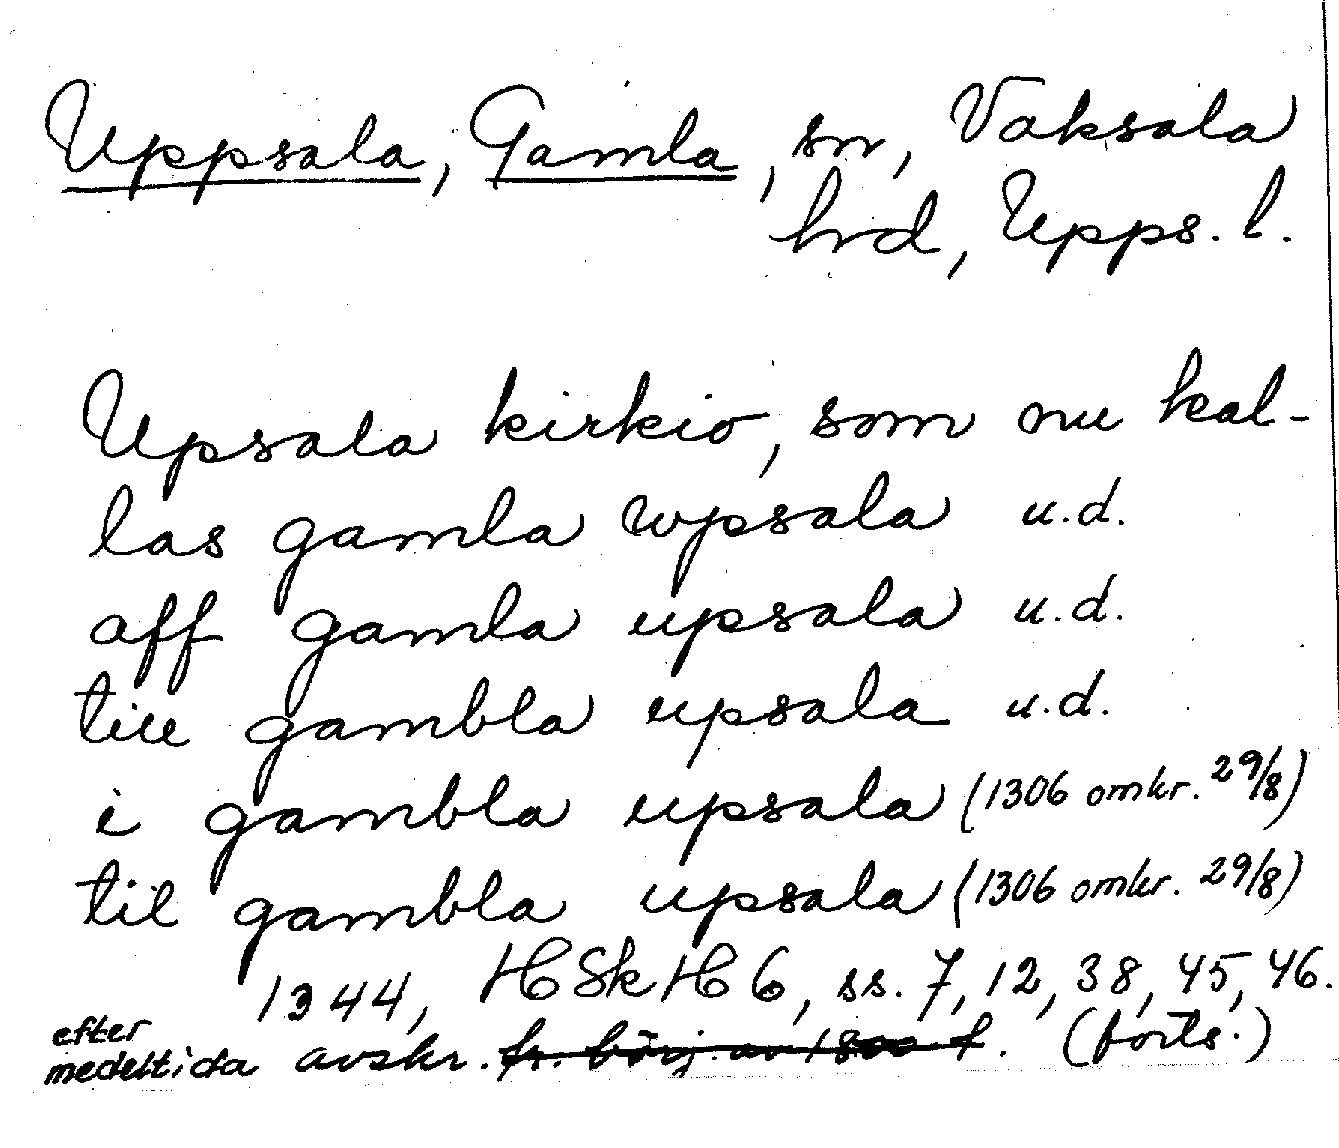 Uppsala, Gamla, sn, Vaksala
hrd, Upps. l.
Upsala kirkio, som nu kal-
las gamla wpsala u.d.
aff gamla upsala u.d.
till gambla upsala u.d.
i gambla upsala (1306 omkr. 29/8)
til gambla upsala (1306 omkr. 29/8)
1344, HSkH 6, ss. 7, 12, 38, 45, 46.
efter
medeltida avskr. fr. börj. av 1800 t. (forts.)